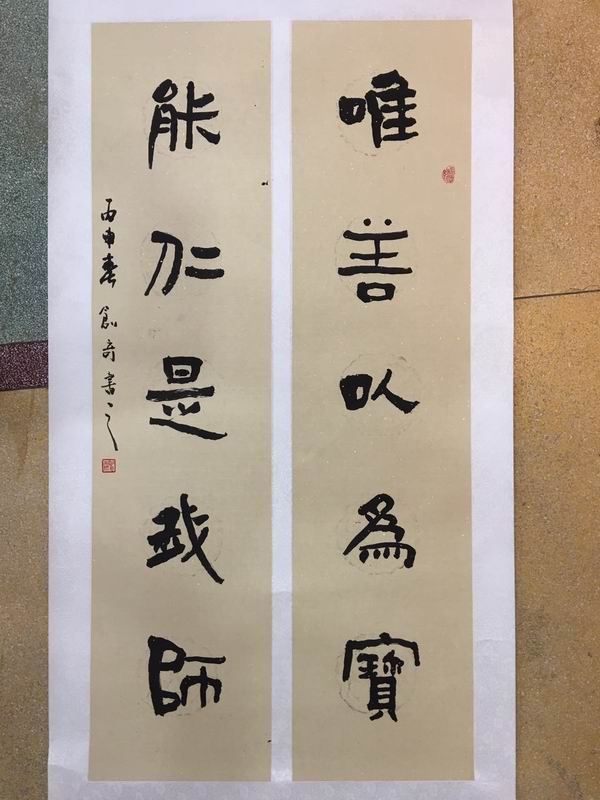 唯善以為寶
能仁是我師
丙申春 創奇書之